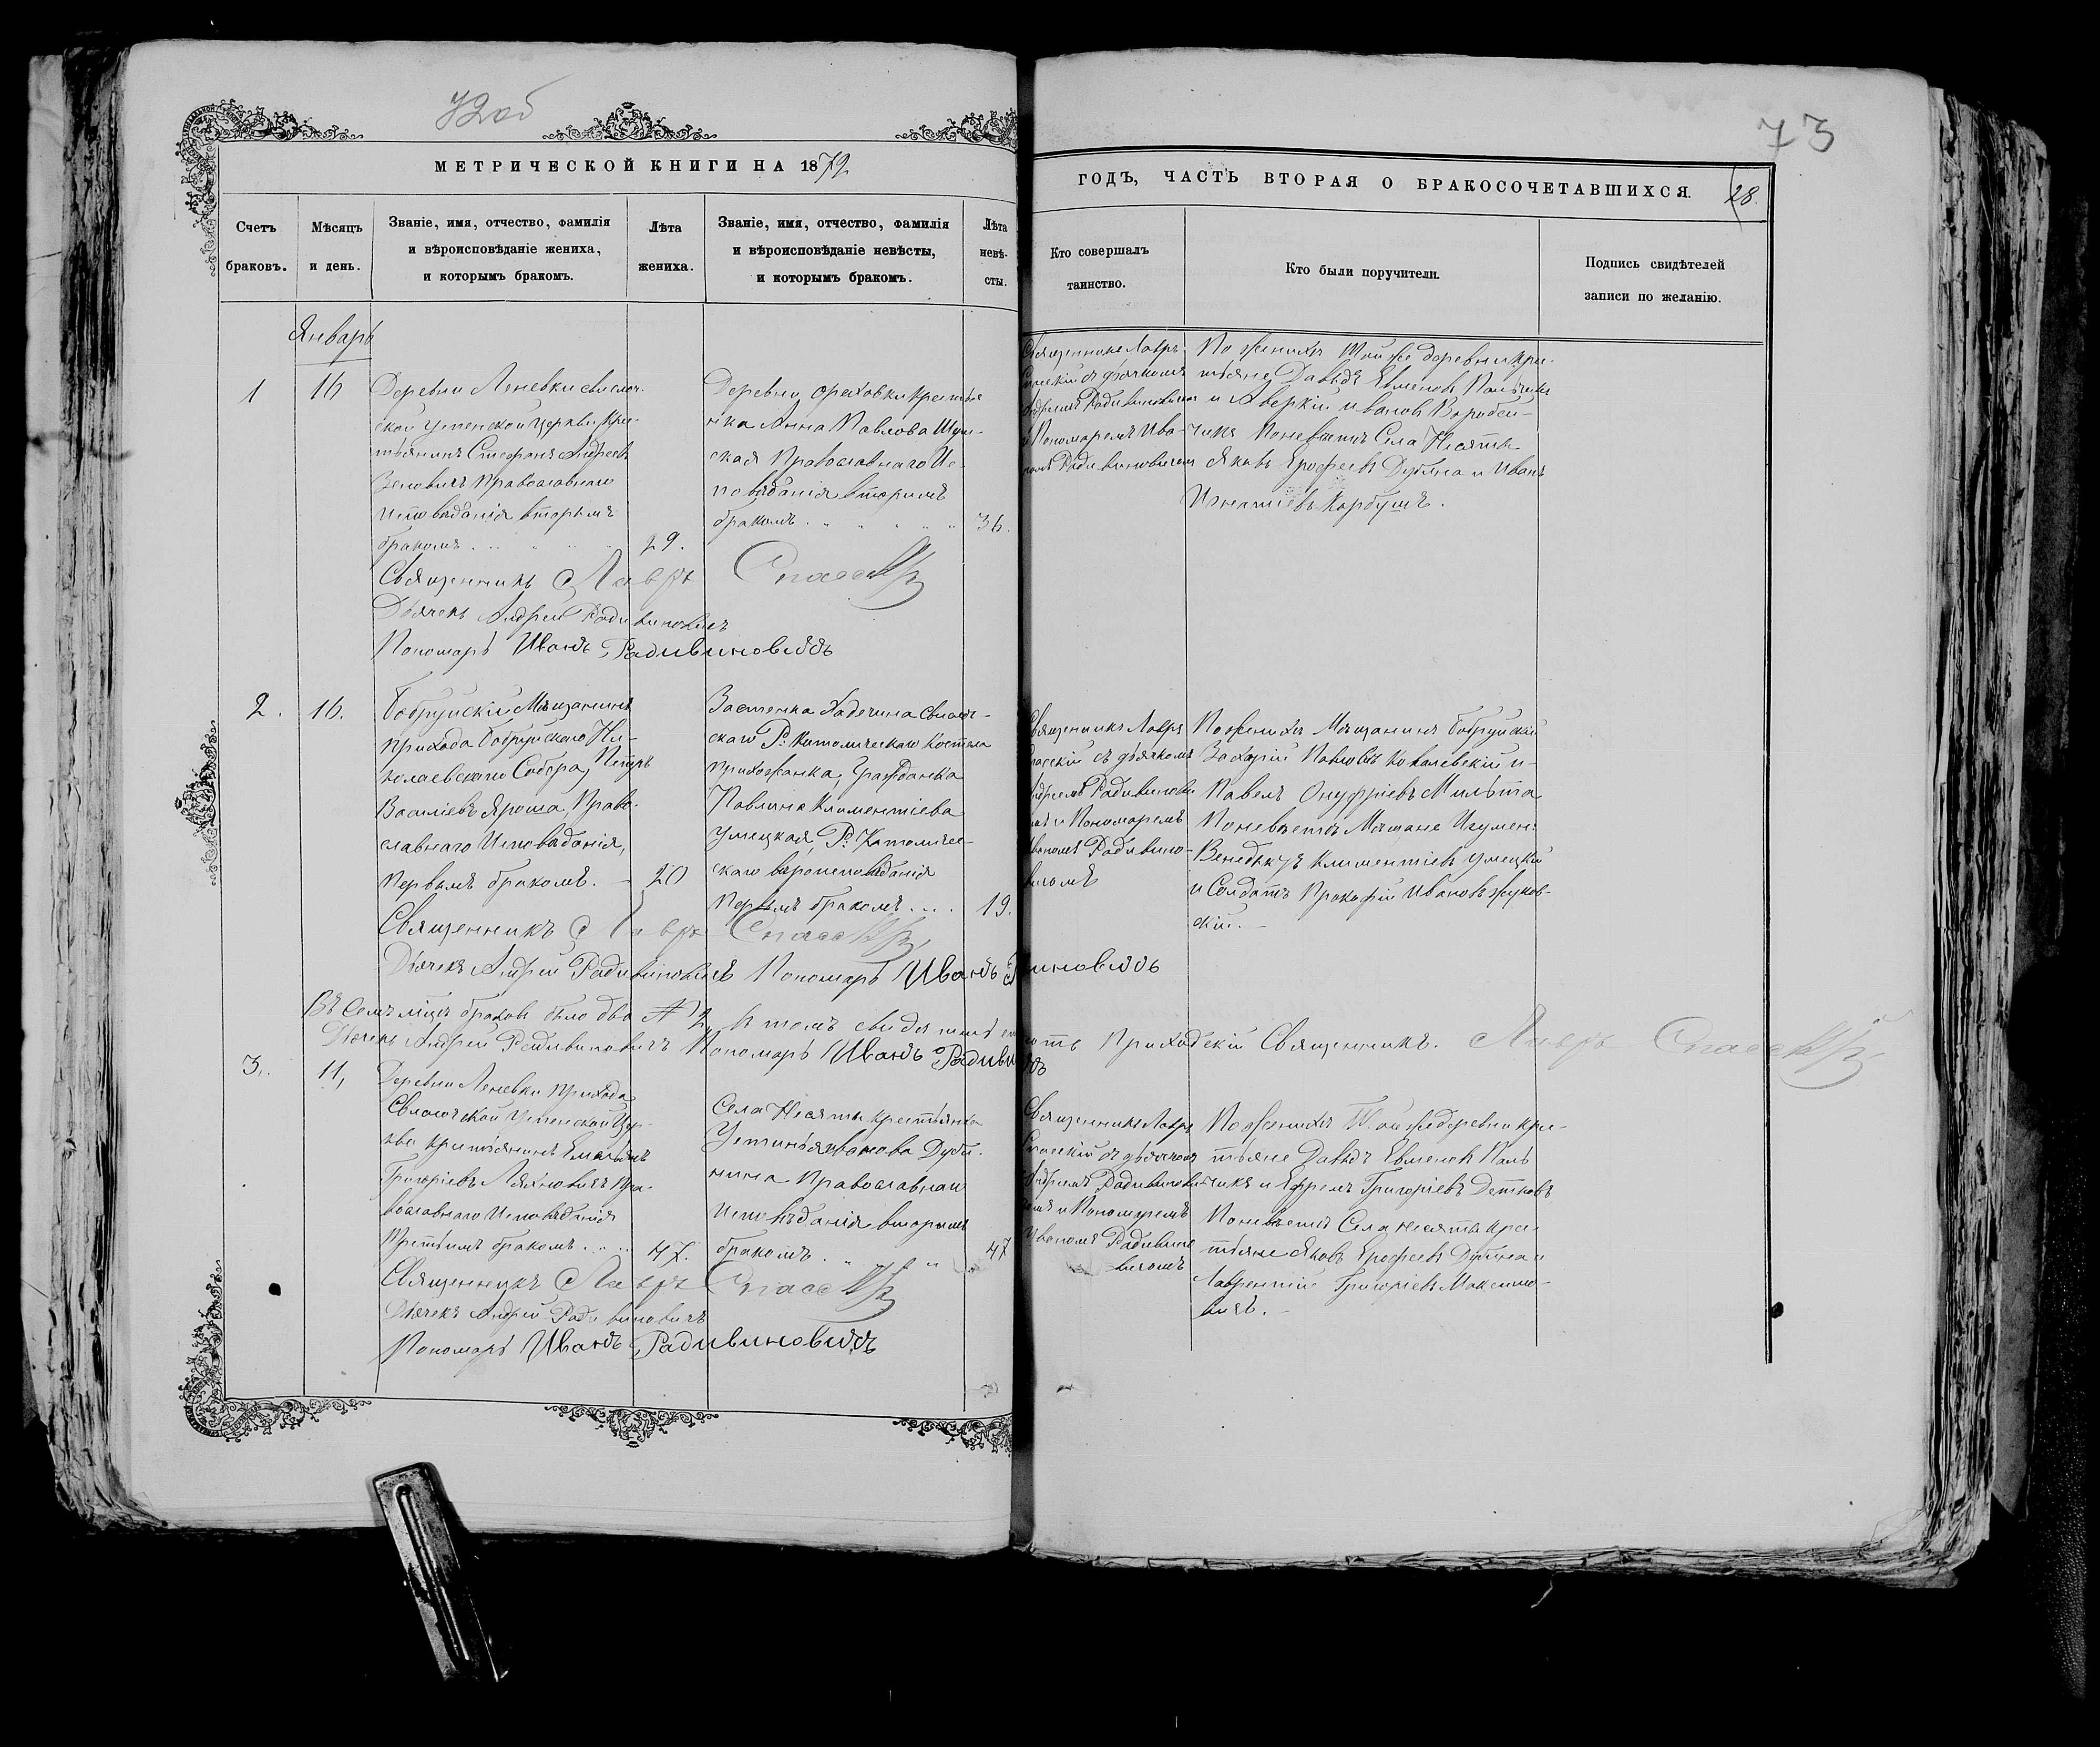 72об
73
МЕТРИЧЕСКОЙ КНИГИ НА 1872
ГОДЪ, ЧАСТЬ ВТОРАЯ О БРАКОСОЧЕТАВШИХСЯ.
28.
Счетъ
браковъ.
Мѣсяцъ
и день.
Званіе, имя, отчество, фамилія
и вѣроисповѣданіе жениха,
и которымъ бракомъ.
Лѣта
жениха.
Званіе, имя, отчество, фамилія
и вѣроисповѣданіе невѣсты,
и которымъ бракомъ.
Лѣта
невѣ-
сты.
Кто совершалъ
таинство.
Кто были поручители.
Подпись свидѣтелей
записи по желанію.
Январь
1
16
Деревни Леневки Свислоч-
ской Успенской Церкви Кре-
стьянинъ Стефанъ Андреевъ
Православнаго
Исповѣданія вторымъ
бракомъ
29.
Деревни Ореховки Крестья
нка Анна Павлова
ская Православнаго Ис-
повѣданія вторымъ
бракомъ
36.
Священникъ Лавръ
Спасскій съ дьячкомъ
Андреемъ Радивиновичемъ
и Пономаремъ Ива-
номъ Радивиновичемъ
По женихѣ Той же деревни Кре-
стьяне Давыдъ Евменовъ Пальчикъ
и Аверкій Ивановъ Воробей-
чикъ По невѣстѣ Села Несяты
Яковъ Ерофеевъ Дубина и Иванъ
Игнатіевъ Карбушъ.
Священникъ Лавръ Спасскій
Дьячекъ Андрей Радивиновичъ
Пономарь Иванъ Радивиновичъ
2.
16.
Бобруйскій Мѣщанинъ
прихода Бобруйскаго Ни-
колаевскаго Собора, Петръ
Василіевъ Яроша, Право-
славнаго Исповѣданія,
первымъ бракомъ.
20
Застенка Свислоч-
скаго Р: Католическаго Костела
прихожанка, Гражданка
Павлина Климентіева
Умецкая, Р: Католиче-
скаго вѣроисповѣданія
первымъ бракомъ
19.
Священникъ Лавръ
Спасскій съ дьячкомъ
Андреемъ Радивинови
чемъ и Пономаремъ
Иваномъ Радивино-
вичемъ
По женихѣ Мѣщанинъ Бобруйскій
Захарій Павловъ Ковалевскій и
Павелъ Онуфріевъ Мильта
По невѣстѣ Мѣщане Игумен:
Венедыктъ Климентіевъ Умецкій
и Солдатъ Прокофій Ивановъ Жуков-
скій.
Священникъ Лавръ Спасскій
Дьячекъ Андрей Радивиновичъ Пономарь Иванъ Радивиновичъ
Въ семъ мѣсяцѣ браковъ было два № 2, въ томъ свидетельствуютъ Приходскій Священникъ Лавръ Спасскій
Дьячекъ Андрей Радивиновичъ Пономарь Иванъ Радивиновичъ
3.
11,
Деревни Леневки прихода
Свислочской Успенской Цер-
кви крестьянинъ Емельянъ
Григоріевъ Ляхновичъ Пра-
вославнаго Исповѣданія
третьимъ бракомъ
47.
Села Несяты Крестьянка
Устинья Иванова Дуби-
нина Православнаго
Исповѣданія вторымъ
бракомъ
47
Священникъ Лавръ
Спасскій съ дьячкомъ
Андреемъ Радивинови
чемъ и Пономаремъ
Иваномъ Радивино
вичемъ
По женихѣ Той же деревни Кре-
стьяне Давыдъ Евменовъ Паль
чикъ и Ефремъ Григоріевъ Детковъ
По невѣстѣ Села Несяты Кре-
стьяне Яковъ Ерофеевъ Дубина и
Лаврентій Григоріевъ Максимо-
вичъ.
Священникъ Лавръ Спасскій
Дьячекъ Андрей Радивиновичъ
Пономарь Иванъ Радивиновичъ